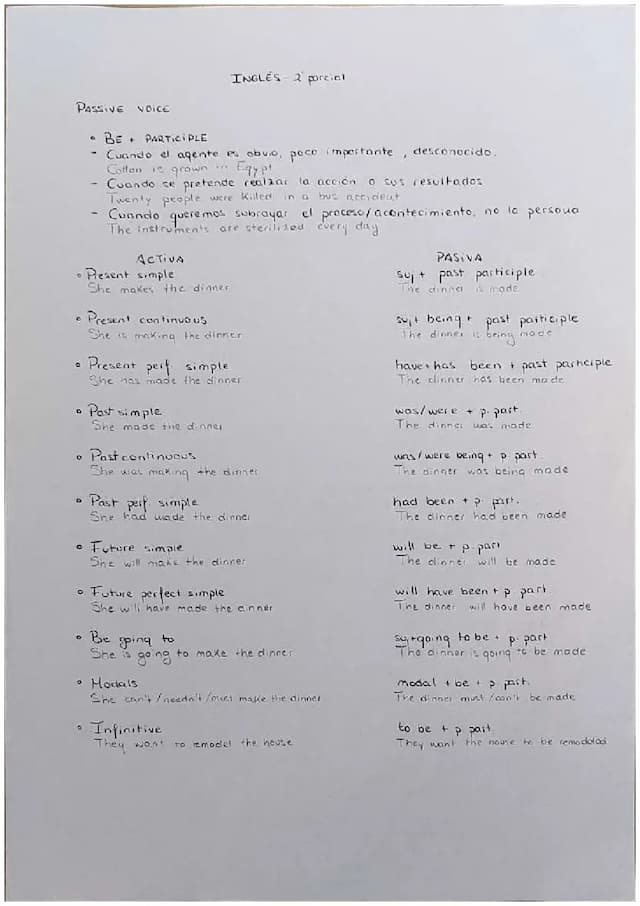 INGLÉS - 2º parcial
PASSIVE VOICE
• BE + PARTICIPLE
- Cuando el agente es obvio, poco importante, desconocido.
Cotton is grown in Egypt
- Cuando se pretende realzar la acción o sus resultados
Twenty people were killed in a bus accident
- Cuando queremos subrayar el proceso/acontecimiento, no la persona
The instruments are sterilized every day
ACTIVA PASIVA
• Present simple suj + past participle
She makes the dinner The dinner is made
• Present continuous suj + being + past participle
She is making the dinner The dinner is being made
• Present perf. simple have+has been + past participle
She has made the dinner The dinner has been made
• Past simple was/were + p. part.
She made the dinner The dinner was made
• Past continuous was/were being + p. part.
She was making the dinner The dinner was being made
• Past perf. simple had been + p. part.
She had made the dinner The dinner had been made
• Future simple will be + p. part
She will make the dinner The dinner will be made
• Future perfect simple will have been + p. part
She will have made the dinner The dinner will have been made
• Be going to suj+going to be + p. part
She is going to make the dinner The dinner is going to be made
• Modals modal + be + p. part.
She can't/needn't/must make the dinner The dinner must/can't be made
• Infinitive to be + p part.
They want to remodel the house They want the house to be remodeled